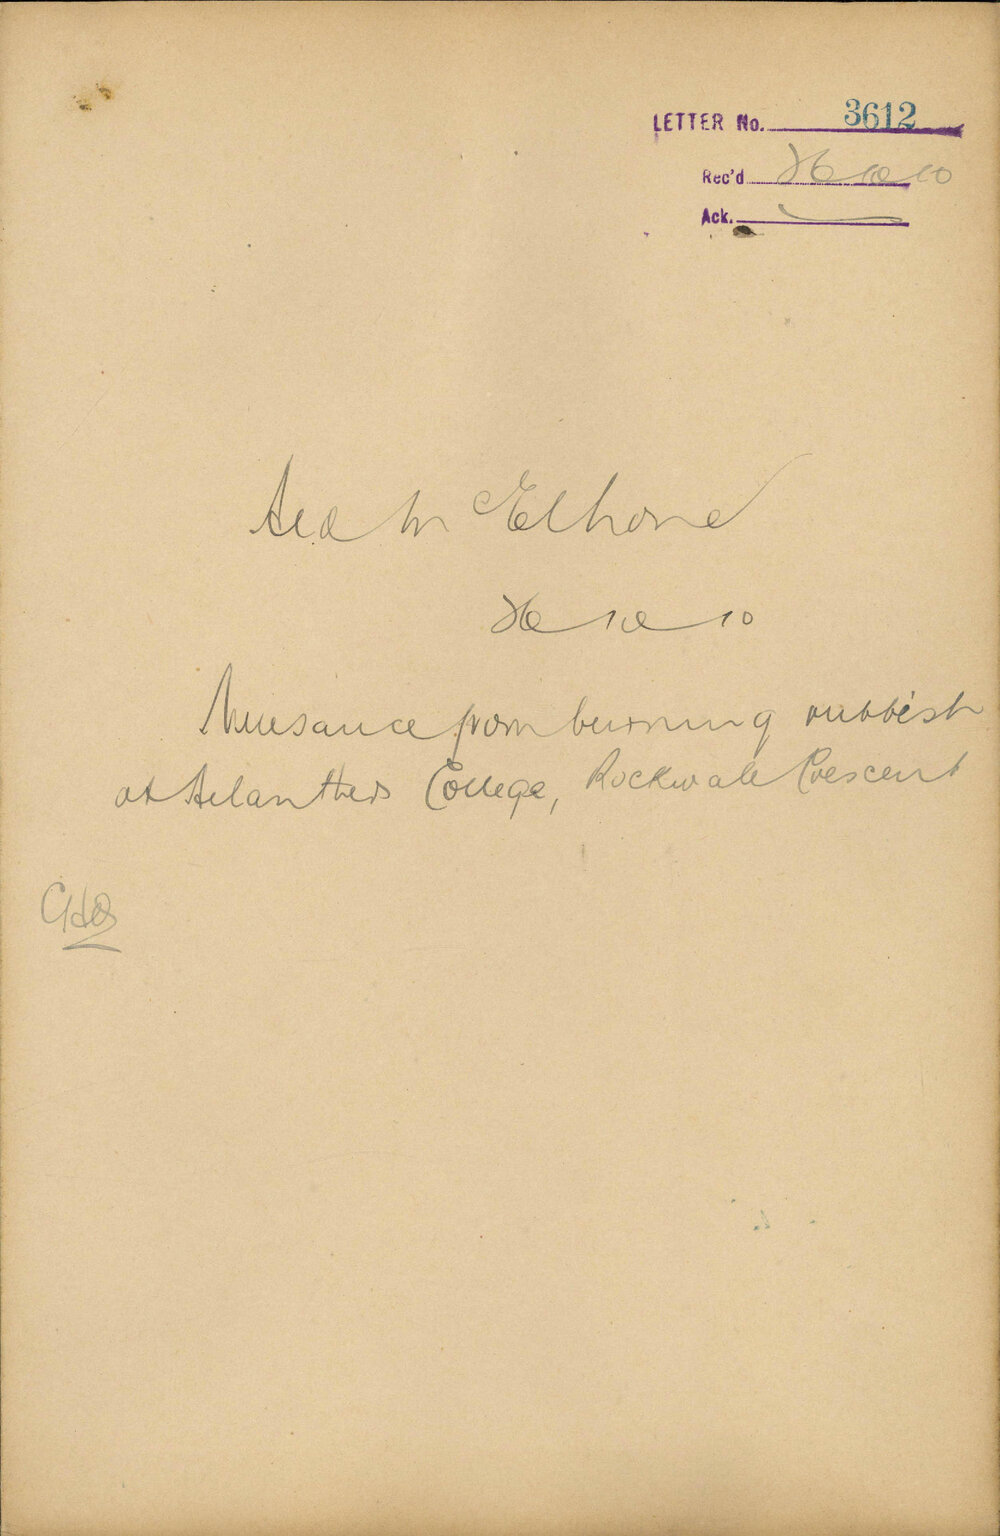 LETTER No. 3612
Rec'd 26 10 10
Ack.
Ald McElhone
26 10 10
Nuisance from burning rubbish
at College, Rockwall Crescent